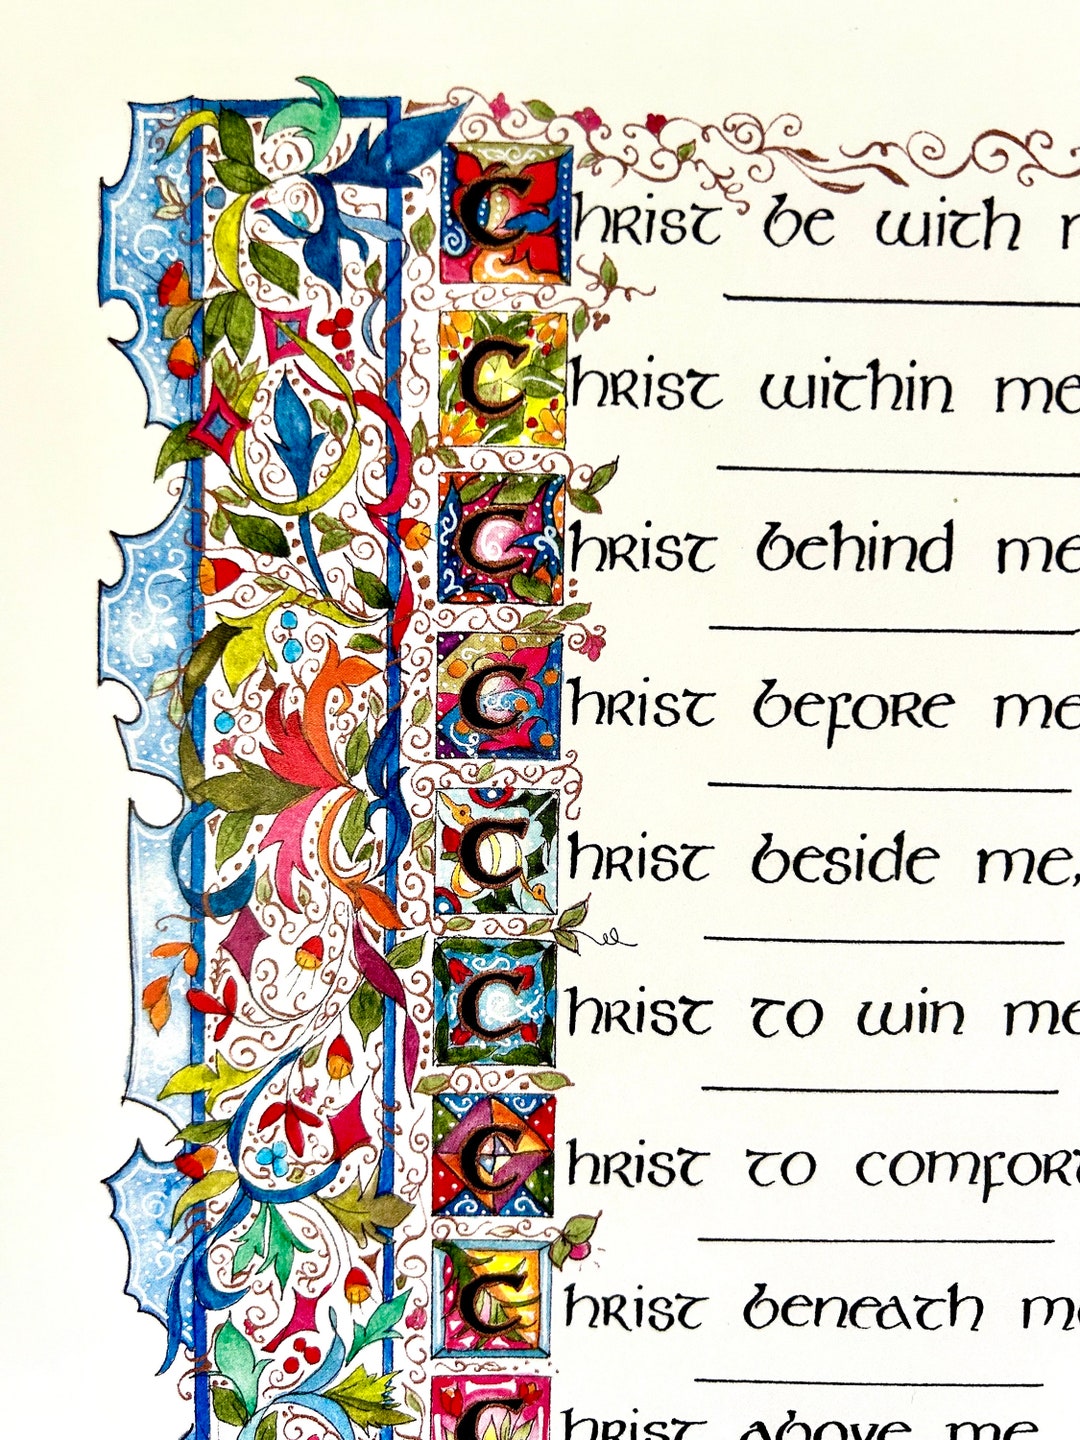 Christ be with
Christ within me
Christ behind me
Christ before me
Christ beside me,
Christ to win me
Christ to comfort
Christ beneath me
Christ above me